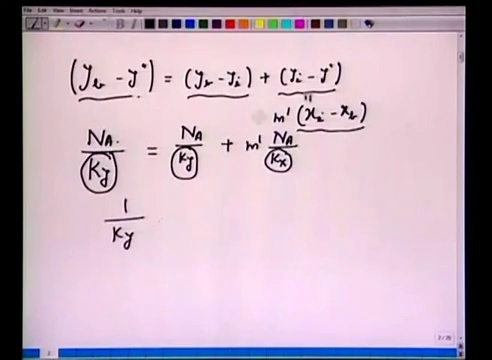 File Edit View Insert Actions Tools Help
(y_b - y*) = (y_b - y_i) + (y_i - y*)
"
m' (x_i - x_b)
N_A / K_y = N_A / k_y + m' N_A / k_x
1 / K_y
2 / 25